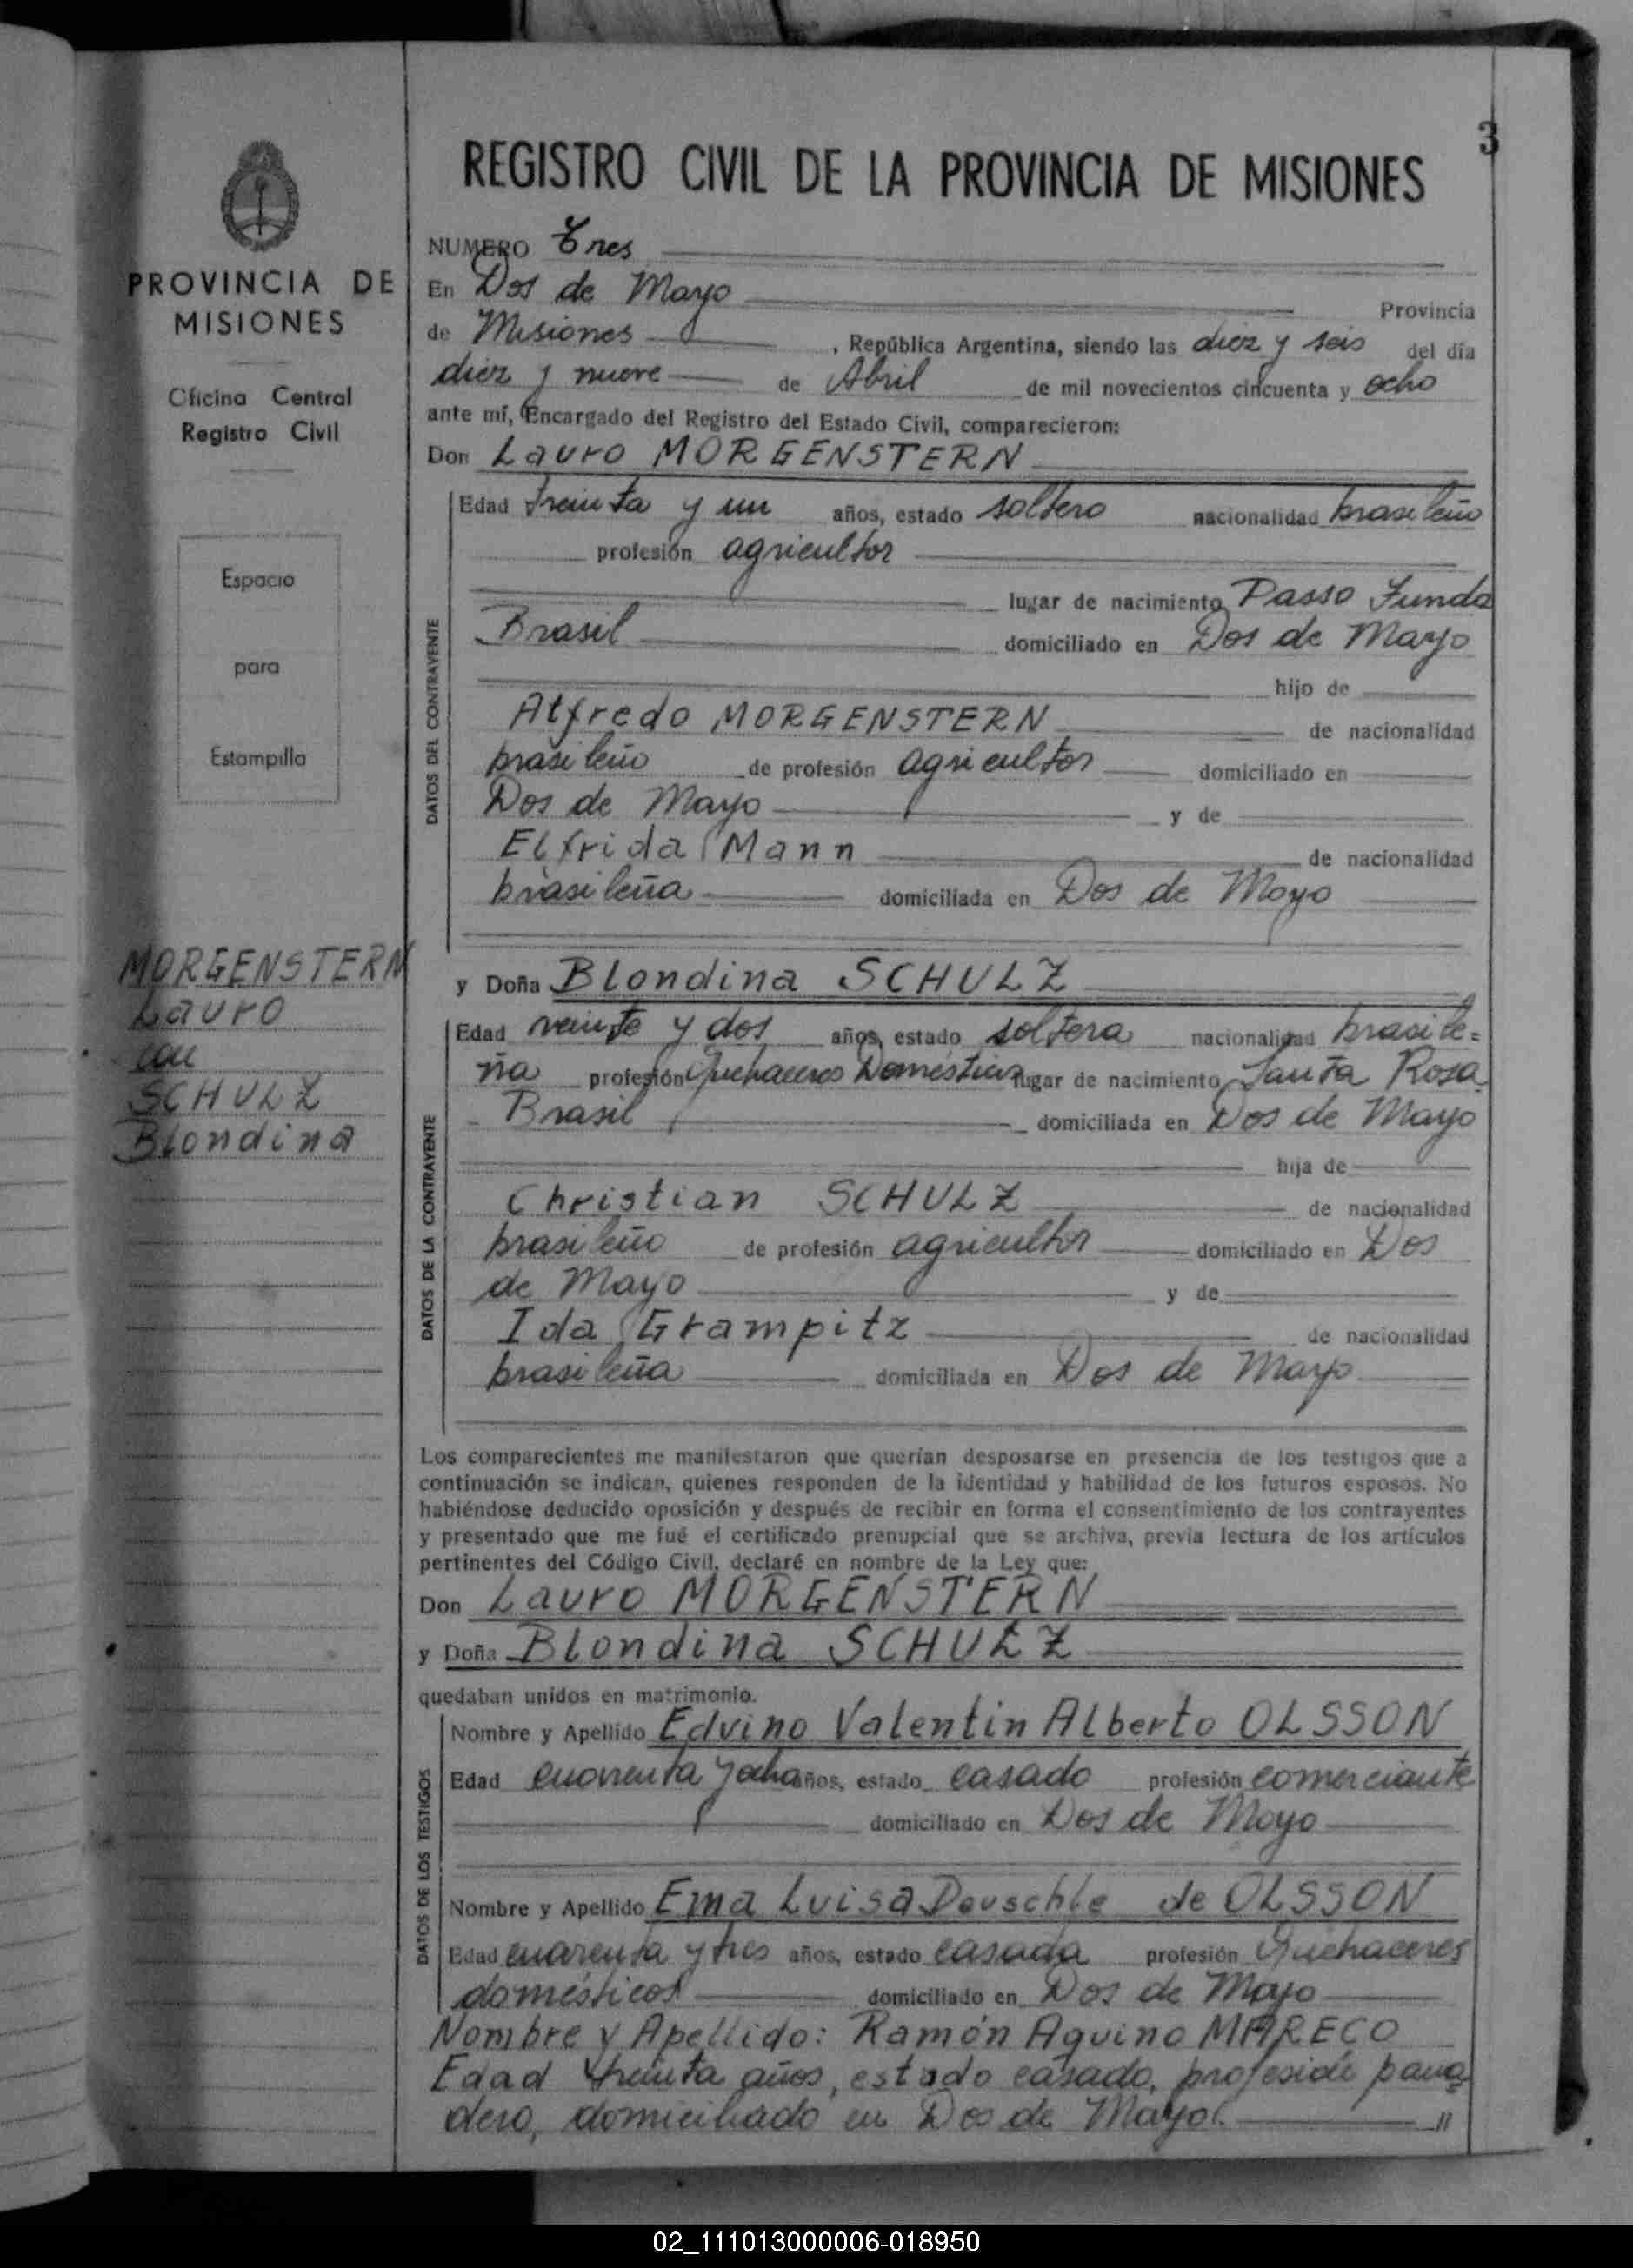 3
REGISTRO CIVIL DE LA PROVINCIA DE MISIONES
PROVINCIA DE
MISIONES
Oficina Central
Registro Civil
Espacio
para
Estampilla
MORGENSTERN
Lauro
con
SCHULZ
Blondina
NUMERO Tres
En Dos de Mayo Provincia
de Misiones, República Argentina, siendo las diez y seis del día
diez y nueve de Abril de mil novecientos cincuenta y ocho
ante mí, Encargado del Registro del Estado Civil, comparecieron:
Don Lauro MORGENSTERN
DATOS DEL CONTRAYENTE
Edad treinta y un años, estado soltero nacionalidad brasileño
profesión agricultor
lugar de nacimiento Passo Fundo
Brasil domiciliado en Dos de Mayo
hijo de
Alfredo MORGENSTERN de nacionalidad
brasileño de profesión agricultor domiciliado en
Dos de Mayo y de
Elfrida Mann de nacionalidad
brasileña domiciliada en Dos de Mayo
y Doña Blondina SCHULZ
DATOS DE LA CONTRAYENTE
Edad veinte y dos años, estado soltera nacionalidad brasile=
ña profesión Quehaceres Domésticos lugar de nacimiento Santa Rosa
Brasil domiciliada en Dos de Mayo
hija de
Christian SCHULZ de nacionalidad
brasileño de profesión agricultor domiciliado en Dos
de Mayo y de
Ida Grampitz de nacionalidad
brasileña domiciliada en Dos de Mayo
Los comparecientes me manifestaron que querían desposarse en presencia de los testigos que a
continuación se indican, quienes responden de la identidad y habilidad de los futuros esposos. No
habiéndose deducido oposición y después de recibir en forma el consentimiento de los contrayentes
y presentado que me fué el certificado prenupcial que se archiva, previa lectura de los artículos
pertinentes del Código Civil, declaré en nombre de la Ley que:
Don Lauro MORGENSTERN
y Doña Blondina SCHULZ
quedaban unidos en matrimonio.
DATOS DE LOS TESTIGOS
Nombre y Apellido Edvino Valentin Alberto OLSSON
Edad cuarenta y ocho años, estado casado profesión comerciante
domiciliado en Dos de Mayo
Nombre y Apellido Ema Luisa Deuschle de OLSSON
Edad cuarenta y tres años, estado casada profesión Quehaceres
domésticos domiciliado en Dos de Mayo
Nombre y Apellido: Ramón Aquino MARECO
Edad treinta años, estado casado, profesión pana=
dero, domiciliado en Dos de Mayo.
02_111013000006-018950